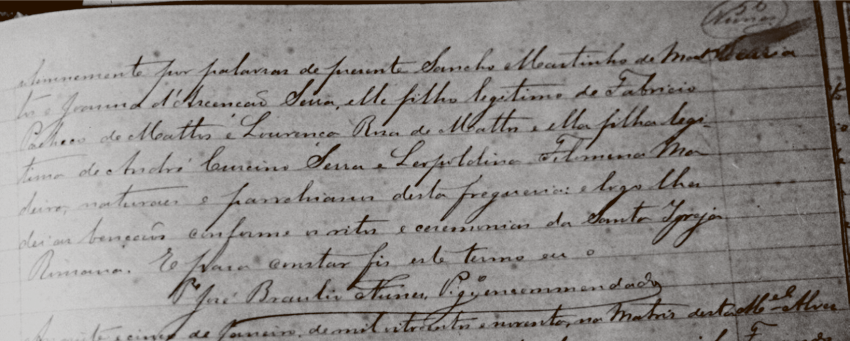 56
Nunes
solemnemente por palavras de presente Sancho Martinho de Mat
tos e Joanna d'Ascenção Serra, elle filho legitimo de Fabricio
Pacheco de Mattos e Lourença Rosa de Mattos e ella filha legi-
tima de André Curcino Serra e Leopoldina Filomena Ma
deira, naturaes e parochianos desta freguesia: e logo lhes
dei as bençãos conforme os ritos e ceremonias da Santa Igreja
Romana. E para constar fis este termo eu o
Pe José Braulio Nunes, Vigo encommendado
e cinco de Janeiro, de mil oitocentos e noventa, na Matris desta Mel Alves